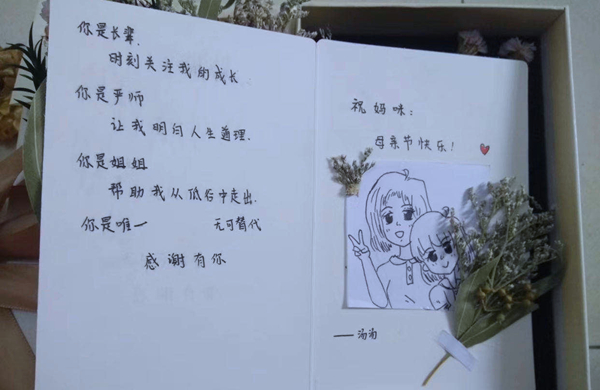 你是长辈,
时刻关注我的成长.
你是严师
让我明白人生道理.
你是姐姐
帮助我从低谷中走出.
你是唯一 无可替代
感谢有你
祝妈咪:
母亲节快乐!
——汤汤